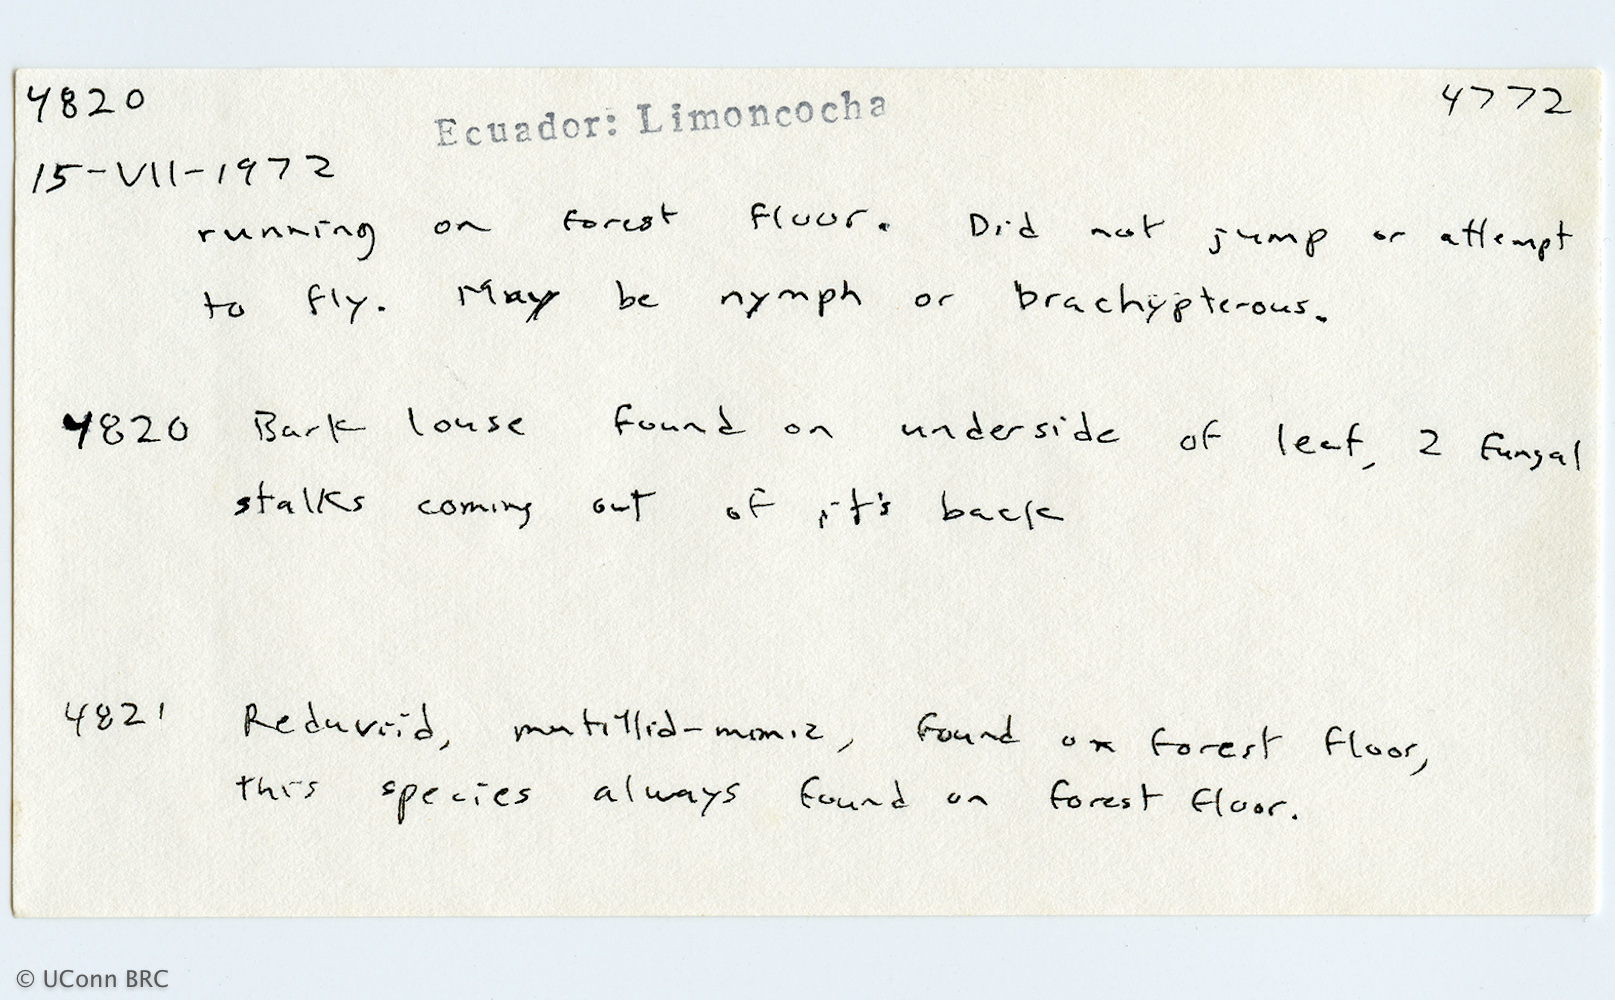 4820
Ecuador: Limoncocha
4772
15-VII-1972
running on forest floor. Did not jump or attempt
to fly. May be nymph or brachypterous.
4820 Bark louse found on underside of leaf, 2 fungal
stalks coming out of it's back
4821 Reduviid, mutillid-mimic, found on forest floor,
this species always found on forest floor.
© UConn BRC